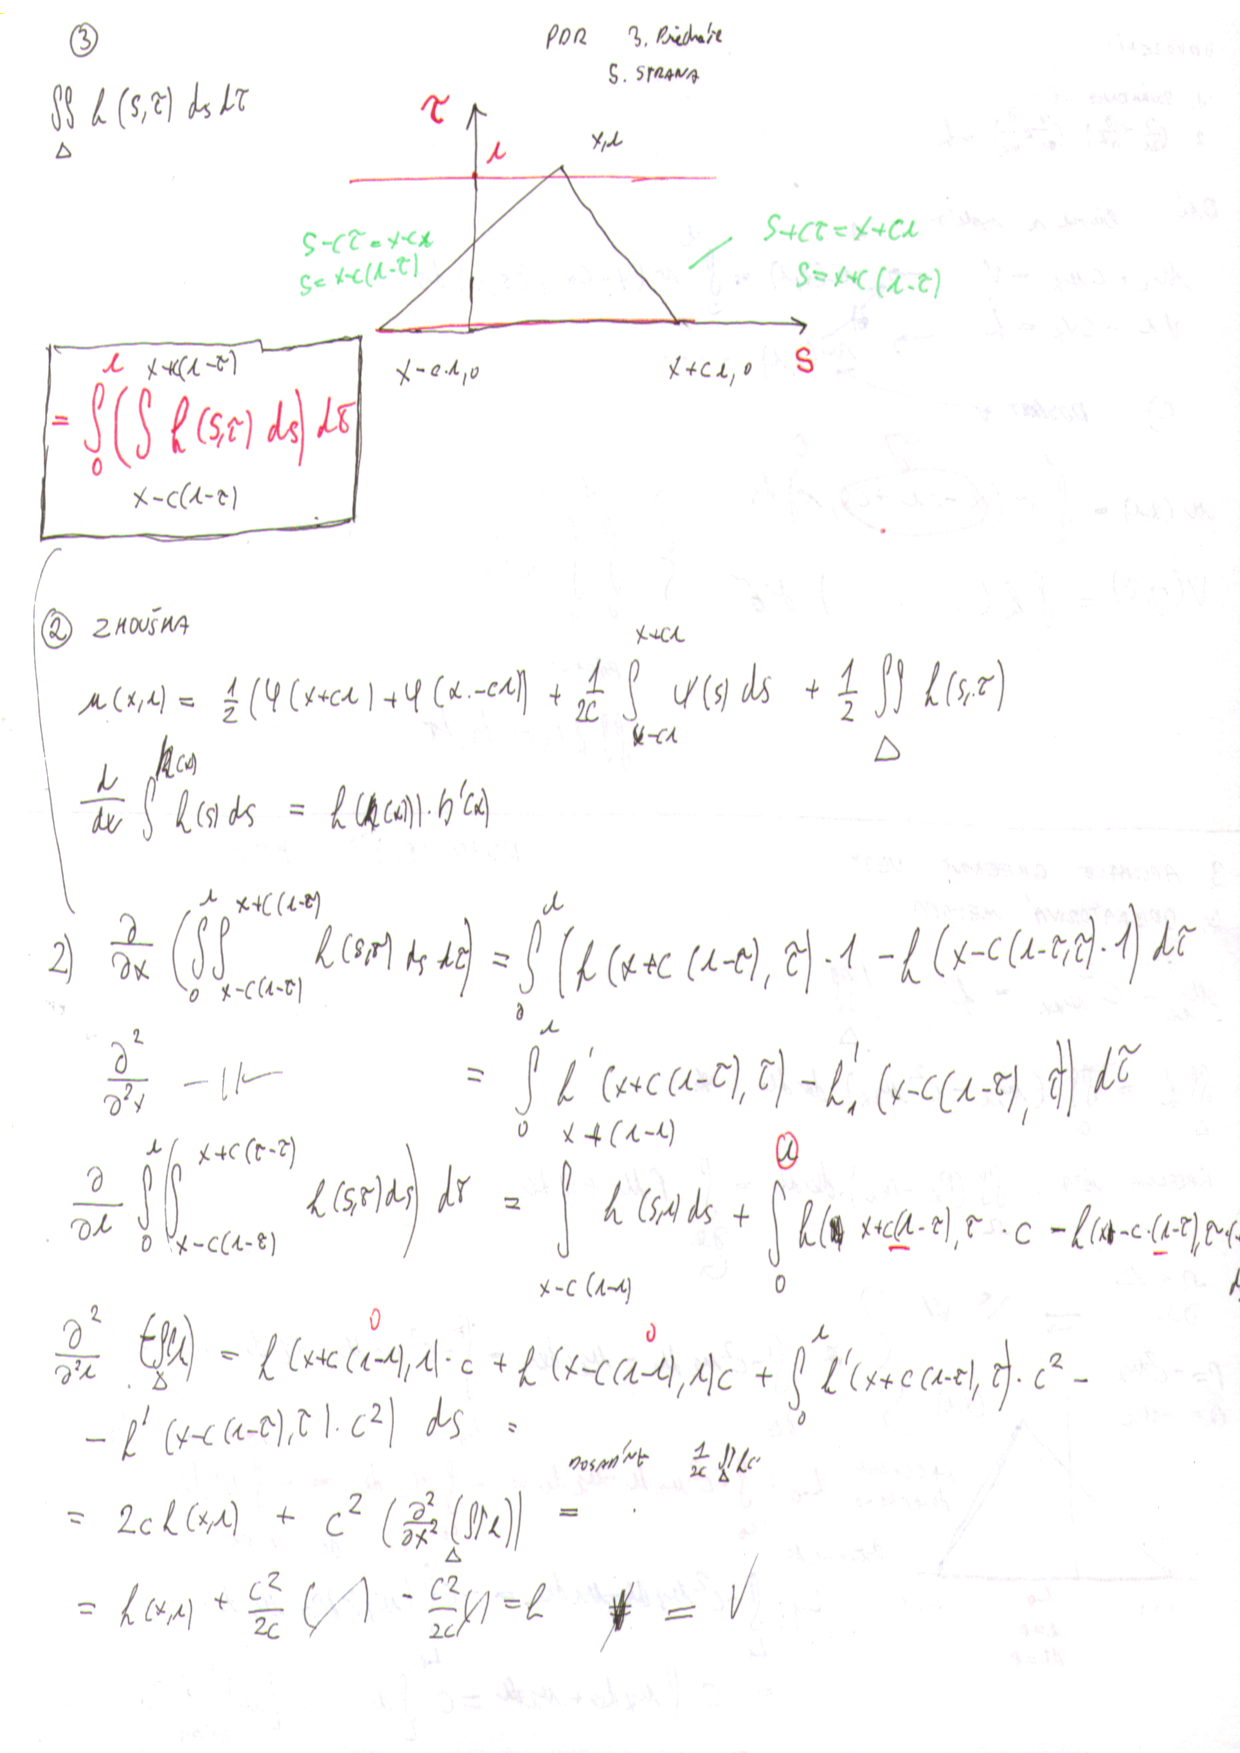 ③
PDR 3. Přednáše
5. STRANA
∬_Δ h(s,τ) ds dτ
τ
t
x,t
s-cτ = x-ct
s = x-c(t-τ)
s+cτ = x+ct
s = x+c(t-τ)
x-c·t,0
x+ct,0
s
= ∫_0^t ( ∫_{x-c(t-τ)}^{x+c(t-τ)} h(s,τ) ds) dτ
② ZKOUŠKA
u(x,t) = 1/2 (φ(x+ct) + φ(x-ct)) + 1/2c ∫_{x-ct}^{x+ct} ψ(s) ds + 1/2 ∬_Δ h(s,τ)
d/dx ∫^{k(x)} h(s) ds = h(k(x))·b'(x)
2) ∂/∂x ( ∫_0^t ∫_{x-c(t-τ)}^{x+c(t-τ)} h(s,τ) ds dτ) = ∫_0^t (h(x+c(t-τ), τ)·1 - h(x-c(t-τ,τ)·1) dτ
∂²/∂²x -||- = ∫_0^t h'(x+c(t-τ), τ) - h'_1(x-c(t-τ), τ)) dτ
∂/∂t ∫_0^t ( ∫_{x-c(t-τ)}^{x+c(τ-τ)} h(s,τ) ds) dτ = ∫_{x-c(t-t)}^{x+(t-t)} h(s,t) ds + ∫_0^t h( x+c(t-τ), τ · c - h(x-c·(t-τ), τ·(-
∂²/∂²t (∬_Δ h) = h(x+c(t-t), t)·c + h(x-c(t-t), t)c + ∫_0^t h'(x+c(t-τ), τ)·c² -
0 0
- h'(x-c(t-τ), τ)·c²) ds =
1/2c ∬_Δ h
= 2c h(x,t) + c² (∂²/∂x² (∬_Δ h)) =
= h(x,t) + c²/2c ( ) - c²/2c ( ) = h = √